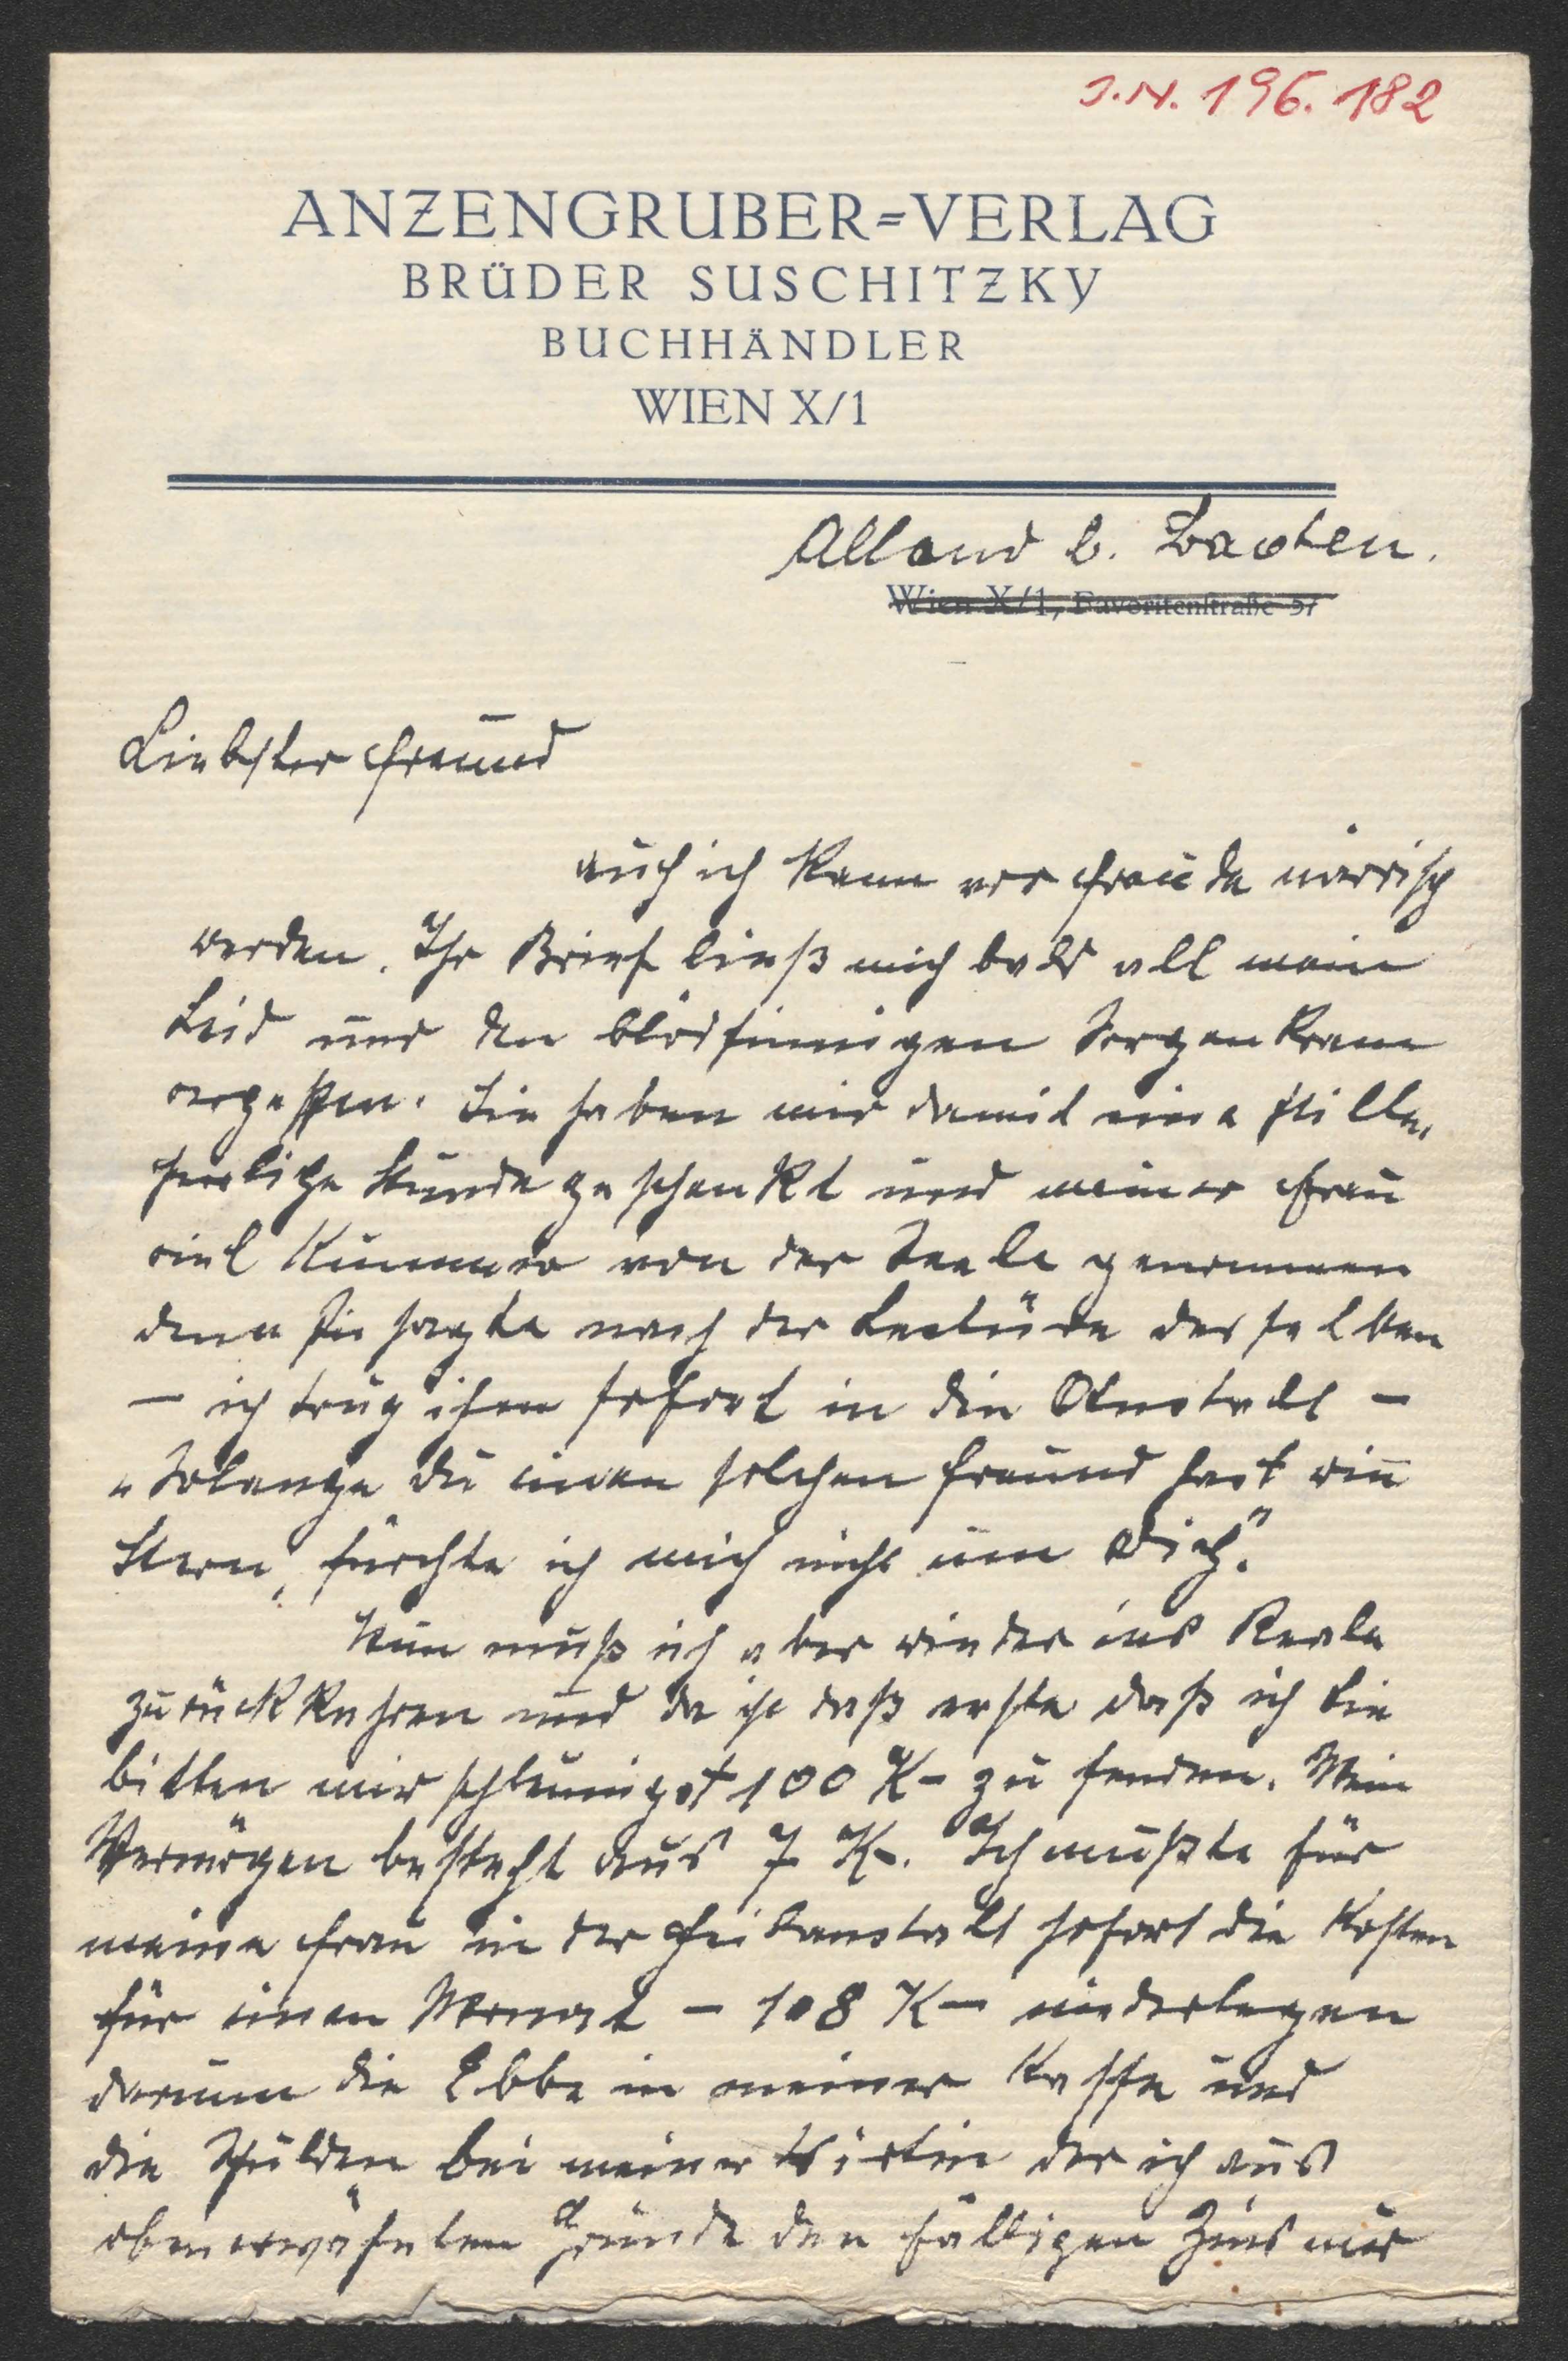 J.N. 196.182
ANZENGRUBER=VERLAG
BRÜDER SUSCHITZKY
BUCHHÄNDLER
WIEN X/1
Alland b. Baden.
Wien X/1, Favoritenstraße 57
Liebster Freund
auch ich kann vor Freude närrisch
werden. Ihr Brief ließ mich bald all mein
Leid und den blödsinnigen Sorgenkram
vergessen. Sie haben mir damit eine stille,
herrliche Stunde geschenkt und meiner Frau
viel Kummer von der Seele genommen
denn sie sagte nach der Lectüre desselben
– ich trug ihn sofort in die Anstalt –
„Solange du einen solchen Freund hast wie
Stern, fürchte ich mich nicht um Dich."
Nun muß ich aber wieder ins Reale
zurückkehren und da ist daß erste daß ich Sie
bitten mir schleunigst 100 K– zu senden. Mein
Vermögen besteht aus 7 K–. Ich mußte für
meine Frau in der Heilanstalt sofort die Kosten
für einen Monat – 108 K– niederlegen
darum die Ebbe in meiner Kasse und
die Schulden bei meiner Wirtin der ich aus
obenerwähnten Grunde den fälligen Zins nur